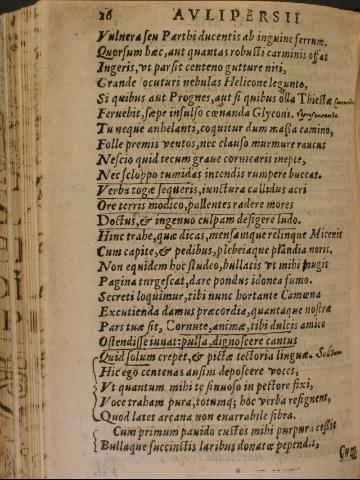 26 AVLI PERSII
Vulnera seu Parthi ducentis ab inguine ferrum.
Quorsum hæc, aut quantas robusti carminis offas
Ingeris, vt par sit centeno gutture niti,
Grande locuturi nebulas Helicone legunto,
Si quibus aut Prognes, aut si quibus olla Thiestæ
Feruebit, sæpe insulso cœnanda Glyconi.
Tu neque anhelanti, coquitur dum massa camino,
Folle premis ventos, nec clauso murmure raucus
Nescio quid tecum graue cornicaris inepte,
Nec scloppo tumidas intendis rumpere buccas.
Verba togæ sequeris, iunctura callidus acri
Ore terris modico, pallentes radere mores
Doctus, & ingenuo culpam defigere ludo.
Hinc trahe, quæ dicas, mensamque relinque Micenis
Cum capite, & pedibus, plebeiaque prandia noris.
Non equidem hoc studeo, bullatis vt mihi nugis
Pagina turgescat, dare pondus idonea fumo.
Secreti loquimur, tibi nunc hortante Camœna
Excutienda damus præcordia, quantaque nostræ
Pars tua sit, Cornute, animæ, tibi dulcis amice
Ostendisse iuuat: pulsa, dignoscere cautus
Quid solum crepet, & pictæ tectoria linguæ.
Hic ego centenas ausim deposcere voces,
Vt quantum mihi te sinuoso in pectore fixi,
Voce traham pura, totumq; hoc verba resignent,
Quod latet arcana non enarrabile fibra.
Cum primum pauido custos mihi purpura cessit
Bullaque succinctis laribus donata pependit,